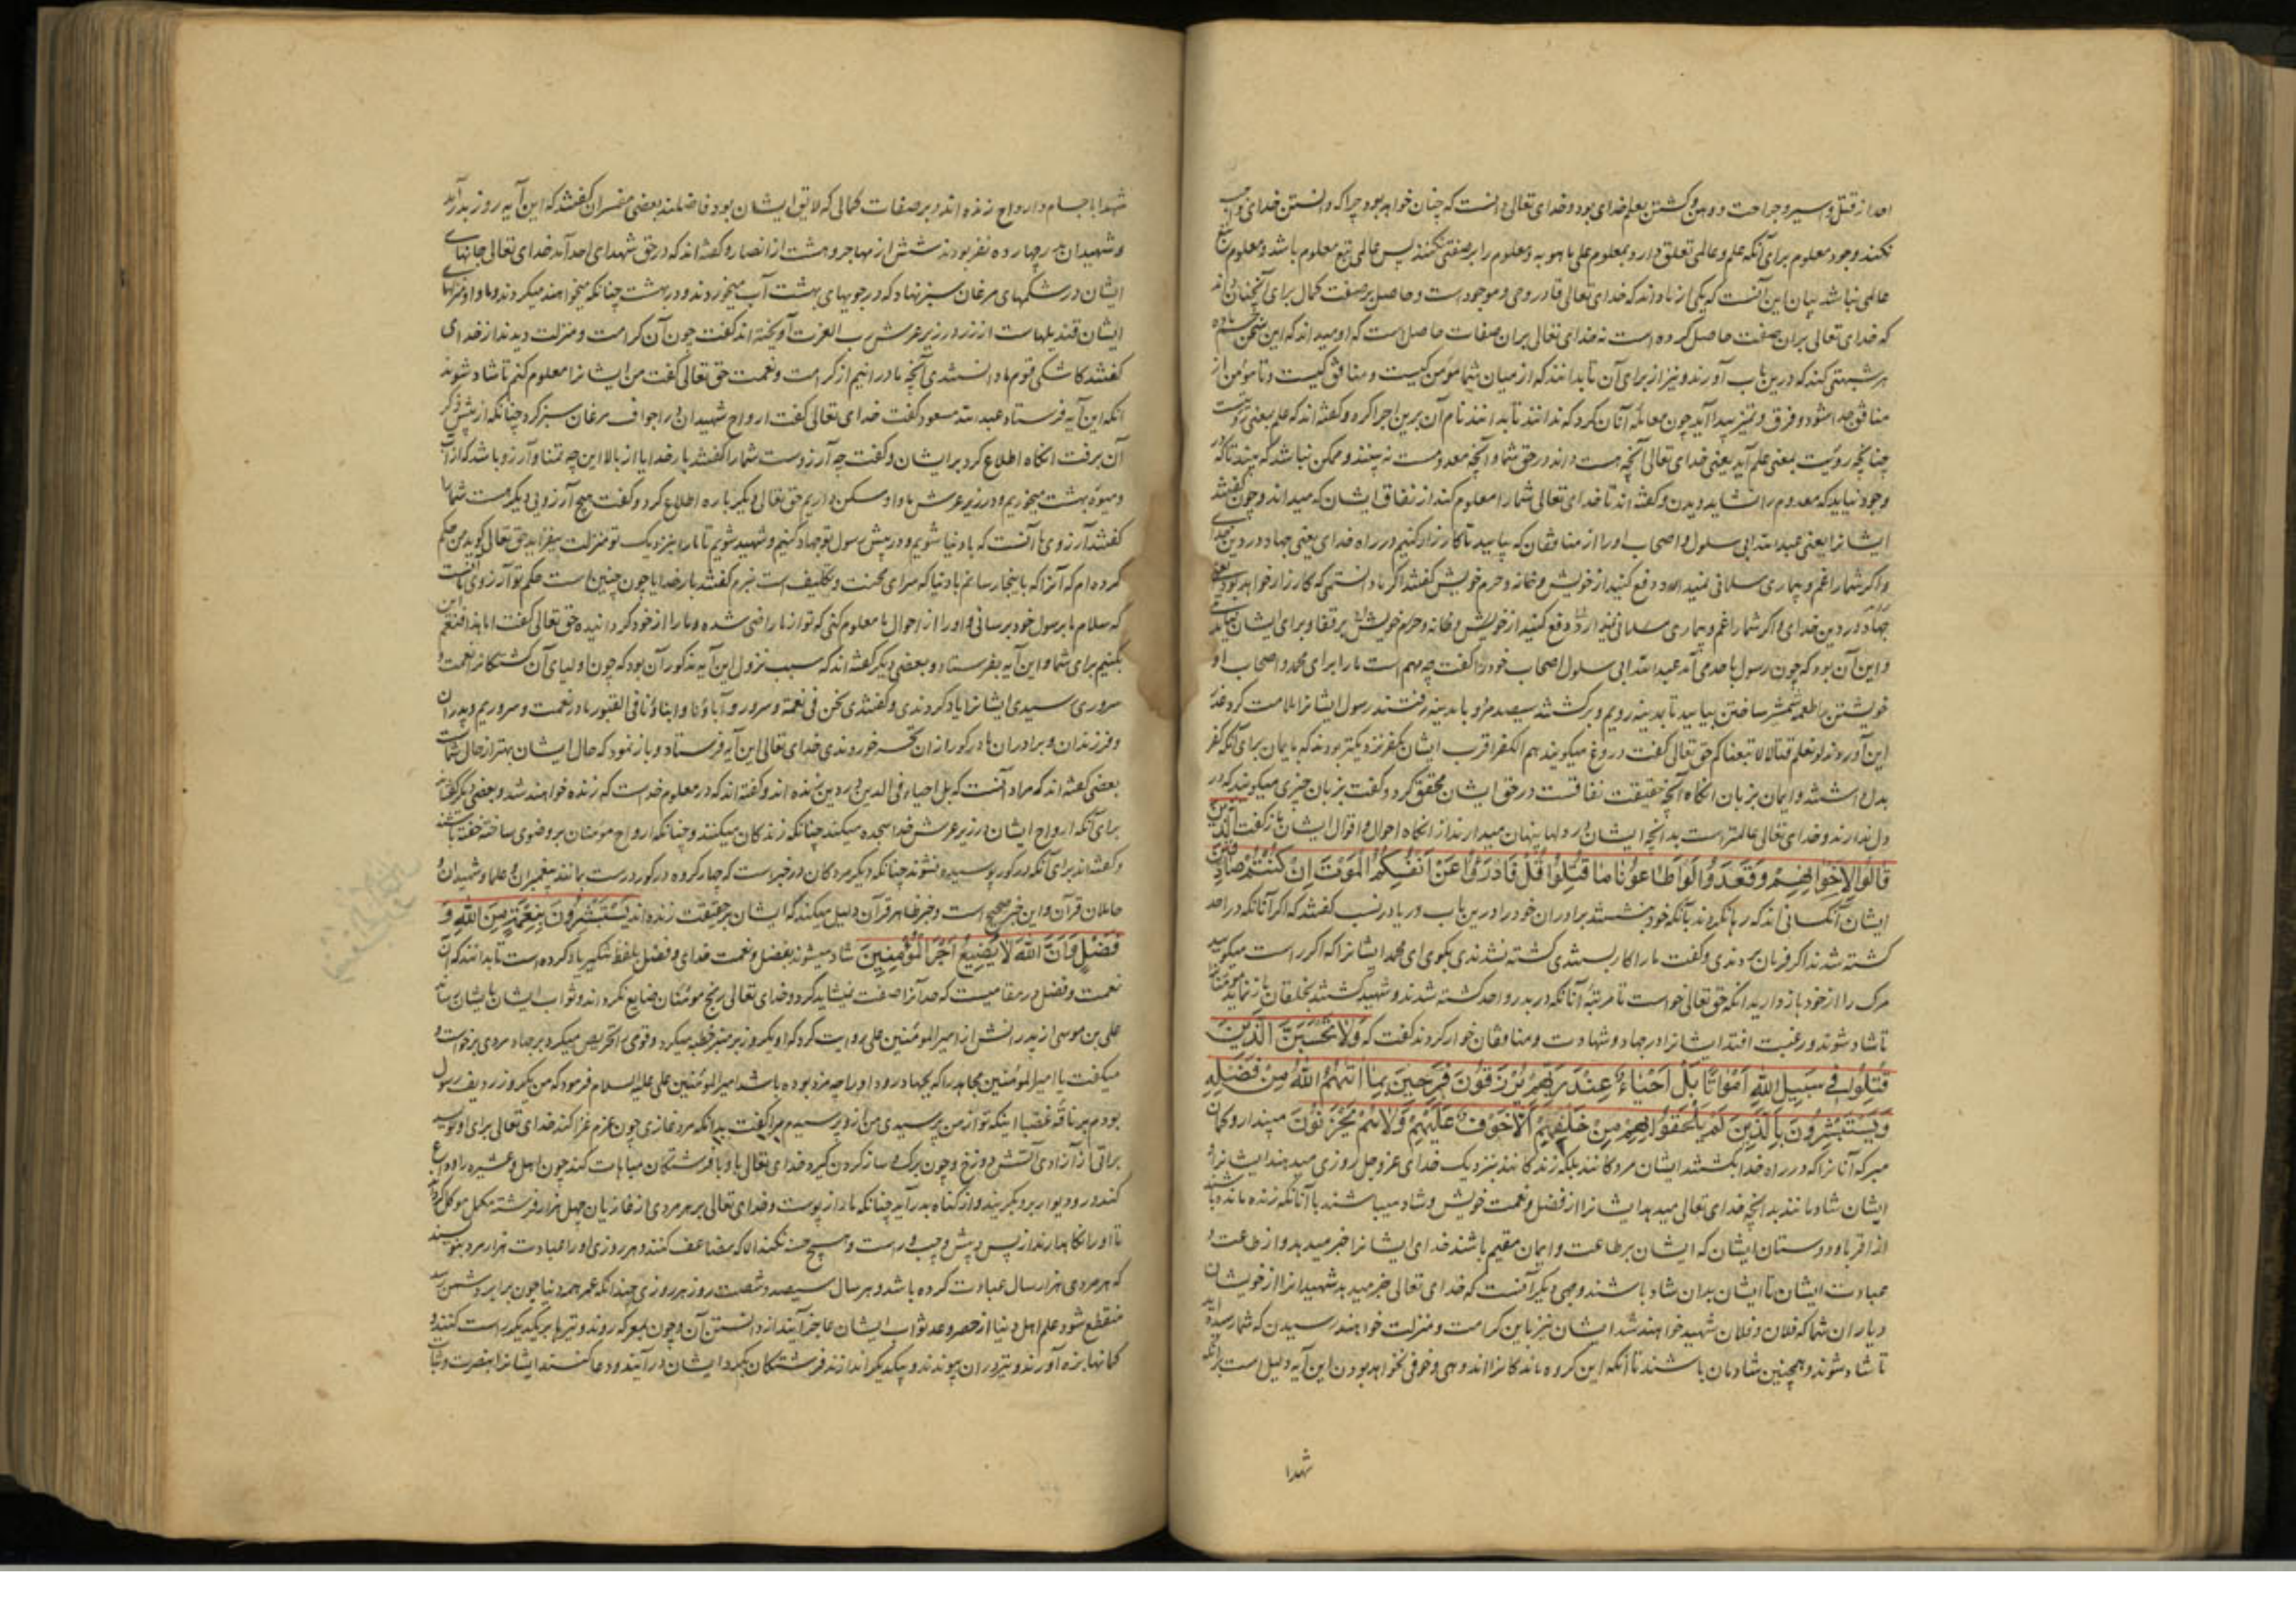 احد از قتل و اسیر و جراحت و وهن و کشتن بعلم خدای بود و خدای تعالی دانست که چنان خواهد بود چرا که دانستن خدای واجب
نکند وجود معلوم برای آنکه علم و عالمی تعلق دارد بمعلوم علی ما هو به و معلوم را بر صفتی نکند پس عالمی تبع معلوم باشد و معلوم تبع
عالمی نباشد بیان این آنست که یکی از ما داند که خدای تعالی قادر و حی و موجود است و حاصل بر صفت کمال برای آنچنان داند
که خدای تعالی بران صفت حاصل کرده است نه خدای تعالی بران صفات حاصل است که او میداند که این سخن
هر شبهتی کند که درین باب آورند و نیز از برای آن تا بدانند که از میان شما مؤمن کیست و منافق کیست و تا مؤمن از
منافق جدا شود و فرق و تمیز پیدا آید چون معامله آنان کرد که ندانند تا بدانند نام آن برین اجرا کرد و گفته اند که علم بمعنی رؤیت است
چنانچه رؤیت بمعنی علم آید یعنی خدای تعالی آنچه هست داند در حق شما و آنچه معدوم است نه بیند و ممکن نباشد که بیند تا که در
وجود نیاید که معدوم را نشاید دیدن و گفته اند تا خدای تعالی شما را معلوم کند از نفاق ایشان که میداند و چون گفتند
ایشانرا یعنی عبد الله ابی سلول و اصحاب او را از منافقان که بیایید تا کارزار کنیم در راه خدای یعنی جهاد در دین خدای
و اگر شما را غم و بیماری مسلمانی نیست دفع کنید از خویش و خانه و حرم خویش گفتند اگر ما دانستمی که کارزار خواهد بود یعنی
جهاد در دین خدای و اگر شما را غم و بیماری مسلمانی نیست دفع کنید از خویش و خانه و حرم خویش برفقا و برای ایشان
و این آن بود که چون رسول باحد می آمد عبد الله ابی سلول اصحاب خود را گفت چه مهم است ما را برای محمد و اصحاب او
خویشتن را طعمه شمشیر ساختن بیایید تا بمدینه رویم و برگشتند سیصد مرد و با مدینه رفتند رسول ایشانرا ملامت کرد
این آوردند لو نعلم قتالا لاتبعناکم حق تعالی گفت دروغ میگویند هم للکفر اقرب ایشان بکفر نزدیکتر بودند که بایمان برای آنکه کفر
بدل داشتند و ایمان بزبان انگاه آنچه حقیقت نفاقست در حق ایشان محقق کرد و گفت بزبان چیزی میگویند که در
دل ندارند و خدای تعالی عالمتر است بدانچه ایشان در دلها پنهان میدارند از انگاه احوال و اقوال ایشان باز گفت الَّذِينَ
قَالُوا لِإِخْوَانِهِمْ وَقَعَدُوا لَوْ أَطَاعُونَا مَا قُتِلُوا قُلْ فَادْرَءُوا عَنْ أَنْفُسِكُمُ الْمَوْتَ إِنْ كُنْتُمْ صَادِقِينَ
ایشان آنکسانی اند که رها نکردند بآنکه خود بنشستند برادران خود را درین باب و یا در نسب گفتند که اگر آنانکه در احد
کشته شدند اگر فرمان بردندی و گفت ما را کار بستندی کشته نشدندی بگوی ای محمد ایشانرا که اگر راست میگویید
مرگ را از خود باز دارید انگه حق تعالی خواست تا مرتبه آنانکه در بدر و احد کشته شدند و شهید گشتند بخلقان باز نماید مؤمنان
تا شاد شوند و رغبت افتد ایشانرا در جهاد و شهادت و منافقان خوار گردند گفت که وَلَا تَحْسَبَنَّ الَّذِينَ
قُتِلُوا فِي سَبِيلِ اللَّهِ أَمْوَاتًا بَلْ أَحْيَاءٌ عِنْدَ رَبِّهِمْ يُرْزَقُونَ فَرِحِينَ بِمَا آتَاهُمُ اللَّهُ مِنْ فَضْلِهِ
وَيَسْتَبْشِرُونَ بِالَّذِينَ لَمْ يَلْحَقُوا بِهِمْ مِنْ خَلْفِهِمْ أَلَّا خَوْفٌ عَلَيْهِمْ وَلَا هُمْ يَحْزَنُونَ مپندار و گمان
مبر که آنانرا که در راه خدا بکشتند ایشان مردگانند بلکه زندگانند بنزدیک خدای عز و جل روزی میدهند ایشانرا و
ایشان شادمانند بدانچه خدای تعالی میدهد ایشانرا از فضل و نعمت خویش و شاد میباشند با آنانکه زنده مانده باشند
از اقربا و دوستان ایشان که ایشان بر طاعت و ایمان مقیم باشند خدای ایشانرا خبر میدهد و از طاعت و
عبادت ایشان تا ایشان بدان شاد باشند وجهی دیگر آنست که خدای تعالی خبر میدهد شهیدانرا از خویشان
و یاران شما که فلان و فلان شهید خواهند شد ایشان نیز باین کرامت و منزلت خواهند رسیدن که شما رسیده اید
تا شاد شوند و همچنین شادمان باشند تا آنکه این گروه ماندگانرا اندوهی و خوفی نخواهد بودن این آیه دلیل است برانکه
شهدا
شهدا با اجسام و ارواح زنده اند و بر صفات کمالی که لایق ایشان بود فاضلند بعضی مفسران گفتند که این آیه روز بدر آمد
و شهیدان بدر چهارده نفر بودند شش از مهاجر و هشت از انصار و گفته اند که در حق شهدای احد آمد خدای تعالی جانهای
ایشان در شکمهای مرغان سبز نهاد که در جویهای بهشت آب میخوردند و در بهشت چنانکه میخواهند میگردند و ماوا و منزلهای
ایشان قندیلهاست از زر در زیر عرش رب العزت آویخته اند گفت چون آن کرامت و منزلت دیدند از خدای
گفتند کاشکی قوم ما دانستندی آنچه ما دراییم از کرامت و نعمت حق تعالی گفت من ایشانرا معلوم کنم تا شاد شوند
انگه این آیه فرستاد عبد الله مسعود گفت خدای تعالی گفت ارواح شهیدان در اجواف مرغان سبز کرد چنانکه از پیش ذکر
آن برفت انگاه اطلاع کرد بر ایشان و گفت چه آرزوست شما را گفتند بار خدایا از بالا این چه تمنا و آرزو باشد که از آب
و میوه بهشت میخوریم و در زیر عرش ماوا و مسکن داریم حق تعالی دیگر باره اطلاع کرد و گفت هیچ آرزویی دیگر هست شما را
گفتند آرزوی ما آنست که با دنیا شویم و در پیش رسول تو جهاد کنیم و شهید شویم تا ما را بنزدیک تو منزلت بیفزاید حق تعالی گوید من حکم
کرده ام که آنرا که باینجا رسانم با دنیا که سرای محنت و تکلیف است نبرم گفتند بار خدایا چون چنین است حکم تو آرزوی ما آنست
که سلام ما برسول خود برسانی و او را از احوال ما معلوم کنی که تو از ما راضی شده و ما را از خود گردانیده حق تعالی گفت اما هذا فنعم این
بکنیم برای شما و این آیه بفرستاد و بعضی دیگر گفته اند که سبب نزول این آیه مذکور آن بود که چون اولیای آن کشتگان نعمت و
سروری رسیدی ایشانرا یاد کردندی و گفتندی نحن فی نعمة و سرور و آباؤنا و ابناؤنا فی القبور ما در نعمت و سروریم و پدران
و فرزندان و برادران ما در گور ازان تحسر خوردندی خدای تعالی این آیه فرستاد و باز نمود که حال ایشان بهتر از حال شماست
بعضی گفته اند که مراد آنست که بل احیاء فی الدین در دین زنده اند و گفته اند که در معلوم خداست که زنده خواهند شد و بعضی دیگر گفته اند
برای آنکه ارواح ایشان در زیر عرش خدا سجده میکند چنانکه زندگان میکنند و چنانکه ارواح مؤمنان بر وضوی ساخته خفته باشند
و گفته اند برای آنکه در گور پوسیده نشوند چنانکه دیگر مردگان در خبر است که چهار گروه در گور درست بمانند پیغمبران و علما و شهیدان و
حاملان قرآن و این خبر صحیح است و خبر ظاهر قرآن دلیل میکند که ایشان بر حقیقت زنده اند يَسْتَبْشِرُونَ بِنِعْمَةٍ مِنَ اللَّهِ وَ
فَضْلٍ وَأَنَّ اللَّهَ لَا يُضِيعُ أَجْرَ الْمُؤْمِنِينَ شاد میشوند بفضل و نعمت خدای و فضل بلفظ تنکیر یاد کرده است تا بدانند که آن
نعمت و فضل در مقامیست که حد آنرا صفت نشاید کرد و خدای تعالی رنج مؤمنان ضایع نکرداند و ثواب ایشان بایشان رساند
علی بن موسی از پدرانش از امیر المؤمنین علی روایت کرد که او یکروز بر منبر خطبه میکرد و قومی را تحریص میکرد بر جهاد مردی برخواست و
میگفت یا امیر المؤمنین مجاهد را که بجهاد رود او را چه مزد بوده باشد امیر المؤمنین علی علیه السلام فرمود که من یکروز ردیف رسول
بودم بر ناقه غضبا اینکه تو از من پرسیدی من ازو پرسیدم مرا گفت بدانکه مرد غازی چون عزم غزا کند خدای تعالی برای او نویسد
براتی از آزادی آتش دوزخ و چون برگ و ساز کردن گیرد خدای تعالی باو با فرشتگان مباهات کند چون اهل و عشیره را وداع
کند در و دیوار برو بگریند و از گناه بدر آید چنانکه مار از پوست و خدای تعالی بر هر مردی از غازیان چهل هزار فرشته موکل کرداند
تا او را نگاه دارند از پس و پیش و چپ و راست و هیچ حسنه نکند الا که مضاعف کنند و هر روزی او را عبادت هزار مرد بنویسند
که هر مردی هزار سال عبادت کرده باشد و هر سال سیصد و شصت روز هر روزی چندانکه عمر همه دنیا چون برابر دشمن رسد
منقطع شود علم اهل دنیا از حصر و عد ثواب ایشان عاجز آیند از دانستن آن و چون بمعرکه روند و تیرها بر یکدیگر راست کنند و
کمانها بزه آورند و تیر در ان پیوندند و بیکدیگر اندازند فرشتگان بگرد ایشان در آیند و دعا کنند ایشانرا بنصرت و ثبات